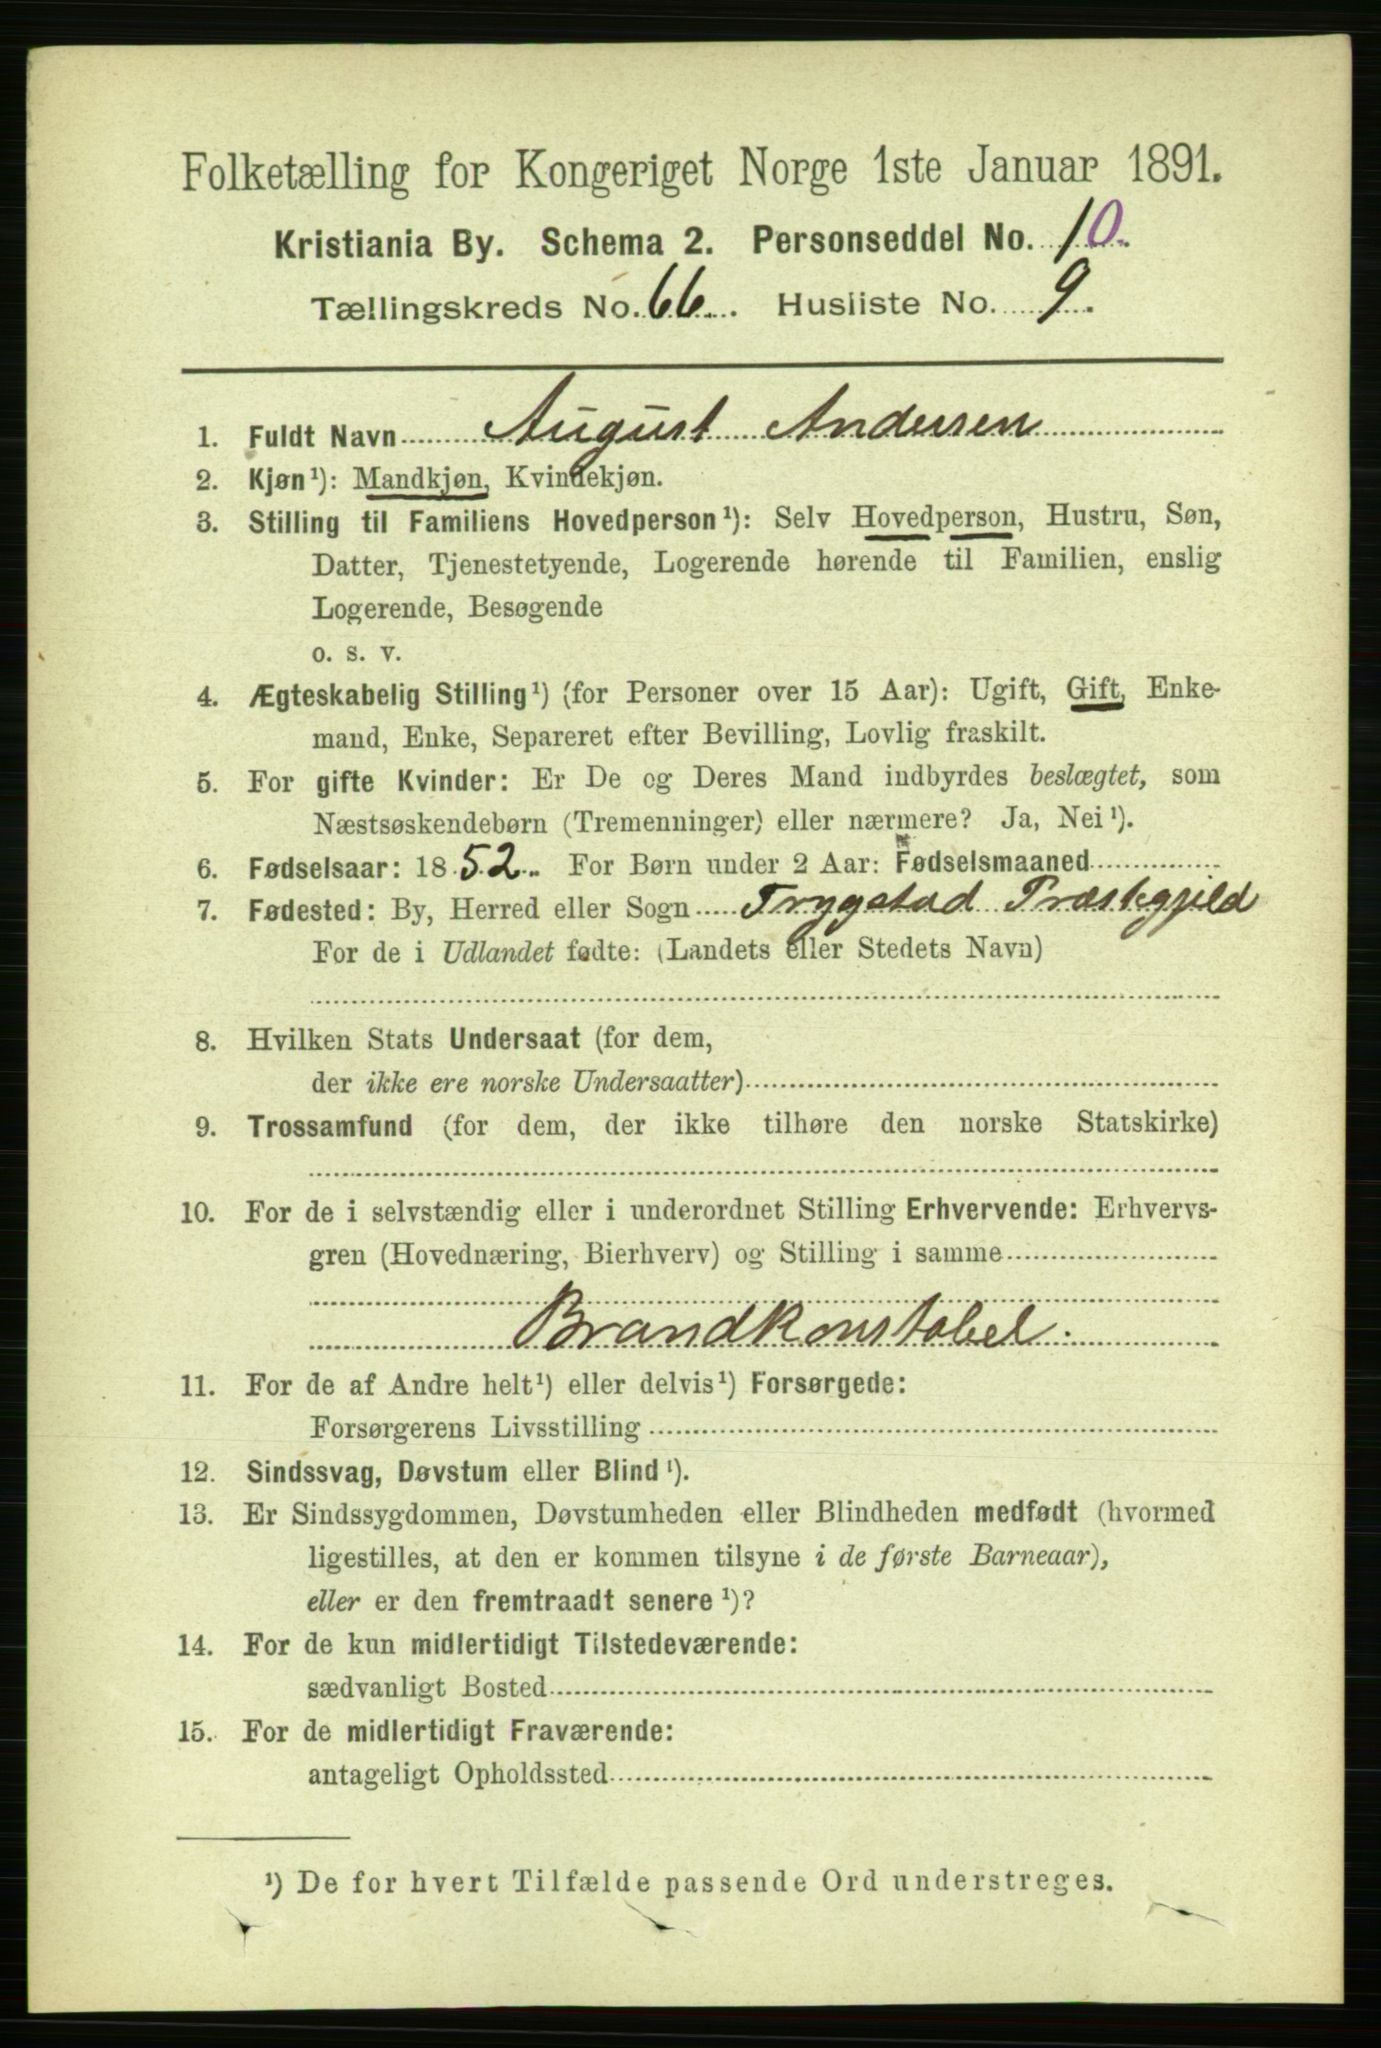 Folketælling for Kongeriget Norge 1ste Januar 1891.
Kristiania By. Schema 2. Personseddel No. 10.
Tællingskreds No. 66. Husliste No. 9.
1. Fuldt Navn August Andersen
2. Kjøn¹): Mandkjøn, Kvindekjøn.
3. Stilling til Familiens Hovedperson¹): Selv Hovedperson, Hustru, Søn,
Datter, Tjenestetyende, Logerende hørende til Familien, enslig
Logerende, Besøgende
o. s. v.
4. Ægteskabelig Stilling¹) (for Personer over 15 Aar): Ugift, Gift, Enke-
mand, Enke, Separeret efter Bevilling, Lovlig fraskilt.
5. For gifte Kvinder: Er De og Deres Mand indbyrdes beslægtet, som
Næstsøskendebørn (Tremenninger) eller nærmere? Ja, Nei¹).
6. Fødselsaar: 1852. For Børn under 2 Aar: Fødselsmaaned
7. Fødested: By, Herred eller Sogn Trygstad Præstegjeld
For de i Udlandet fødte: (Landets eller Stedets Navn)
8. Hvilken Stats Undersaat (for dem,
der ikke ere norske Undersaatter)
9. Trossamfund (for dem, der ikke tilhøre den norske Statskirke)
10. For de i selvstændig eller i underordnet Stilling Erhvervende: Erhvervs-
gren (Hovednæring, Bierhverv) og Stilling i samme
Brandkonstabel.
11. For de af Andre helt¹) eller delvis¹) Forsørgede:
Forsørgerens Livsstilling
12. Sindssvag, Døvstum eller Blind¹).
13. Er Sindssygdommen, Døvstumheden eller Blindheden medfødt (hvormed
ligestilles, at den er kommen tilsyne i de første Barneaar),
eller er den fremtraadt senere¹)?
14. For de kun midlertidigt Tilstedeværende:
sædvanligt Bosted
15. For de midlertidigt Fraværende:
antageligt Opholdssted
¹) De for hvert Tilfælde passende Ord understreges.